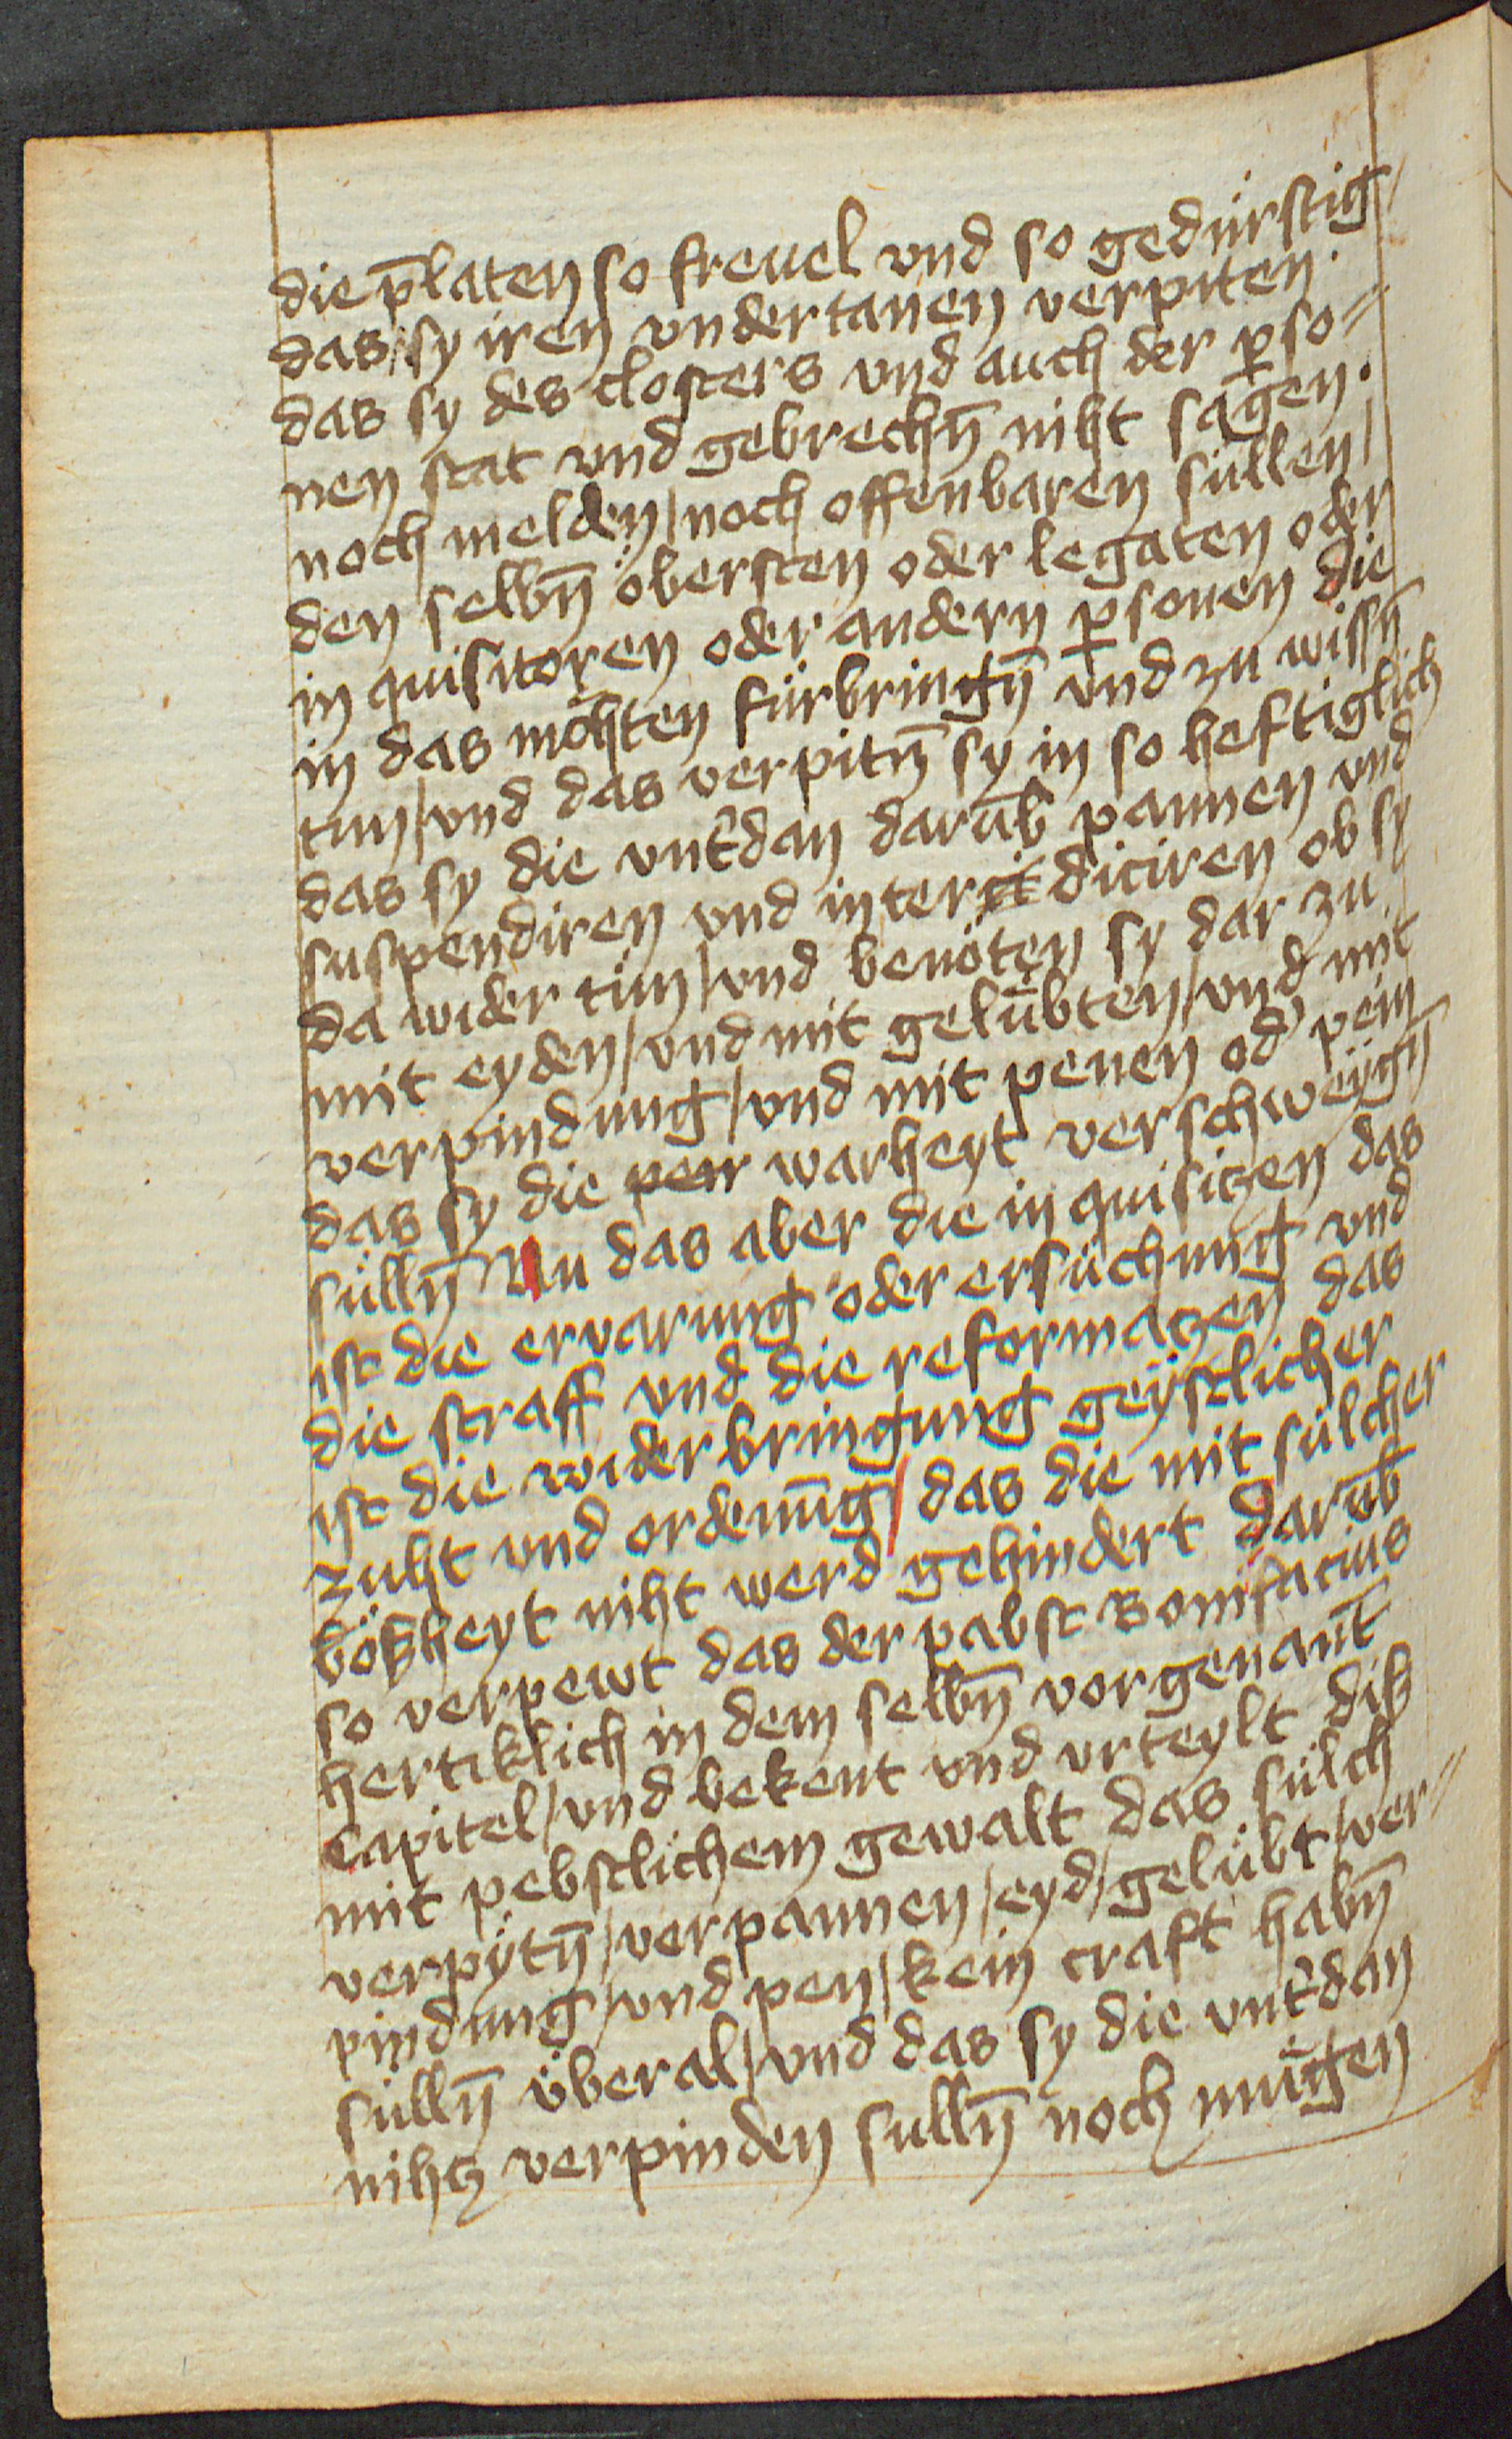 die p̄laten so freuel vnd so gedürstig /
das sy iren vndertanen verpiten ·
das sy des closters vnd auch der ꝑso⸗
nen stat vnd gebrechn̄ niht sagen ·
noch melden / noch offenbaren süllen /
den selbn̄ öbersten oder legaten oder
in quisitoren oder andern ꝑsonen die
in das möhten fürbringn̄ vnd zu wissn̄
tun / vnd das verpitn̄ sy in so heftiglich
das sy die vnt̄dan darūb pannen vnd
suspendiren vnd inter diciren ob sy
da wider tün / vnd benöten sy dar zu
mit eyden / vnd mit gelübten / vnd mit
verpindung / vnd mit penen od' pein
das sy die pen warheyt verschweygn̄
sülln̄ Nu das aber die in quisiczen das
ist die ervarung oder ersüchung vnd
die straff vnd die reformaczen das
ist die widerbringung geystlicher
zuht vnd ordenūg / das die mit sülcher
bößheyt niht werd gehindert darūb
so verpewt das der pabst Bonifacius
herticklich in dem selbn̄ vorgenant̄
Capitel / vnd bekent vnd vrteylt diß
mit pebstlichem gewalt das sülch
verpÿtn̄ / verpannen / eyd / gelübt / ver⸗
pindung / vnd pen / kein craft habn̄
sülln̄ überal / vnd das sy die vnt̄dan
nihcz verpinden sulln̄ noch mügen